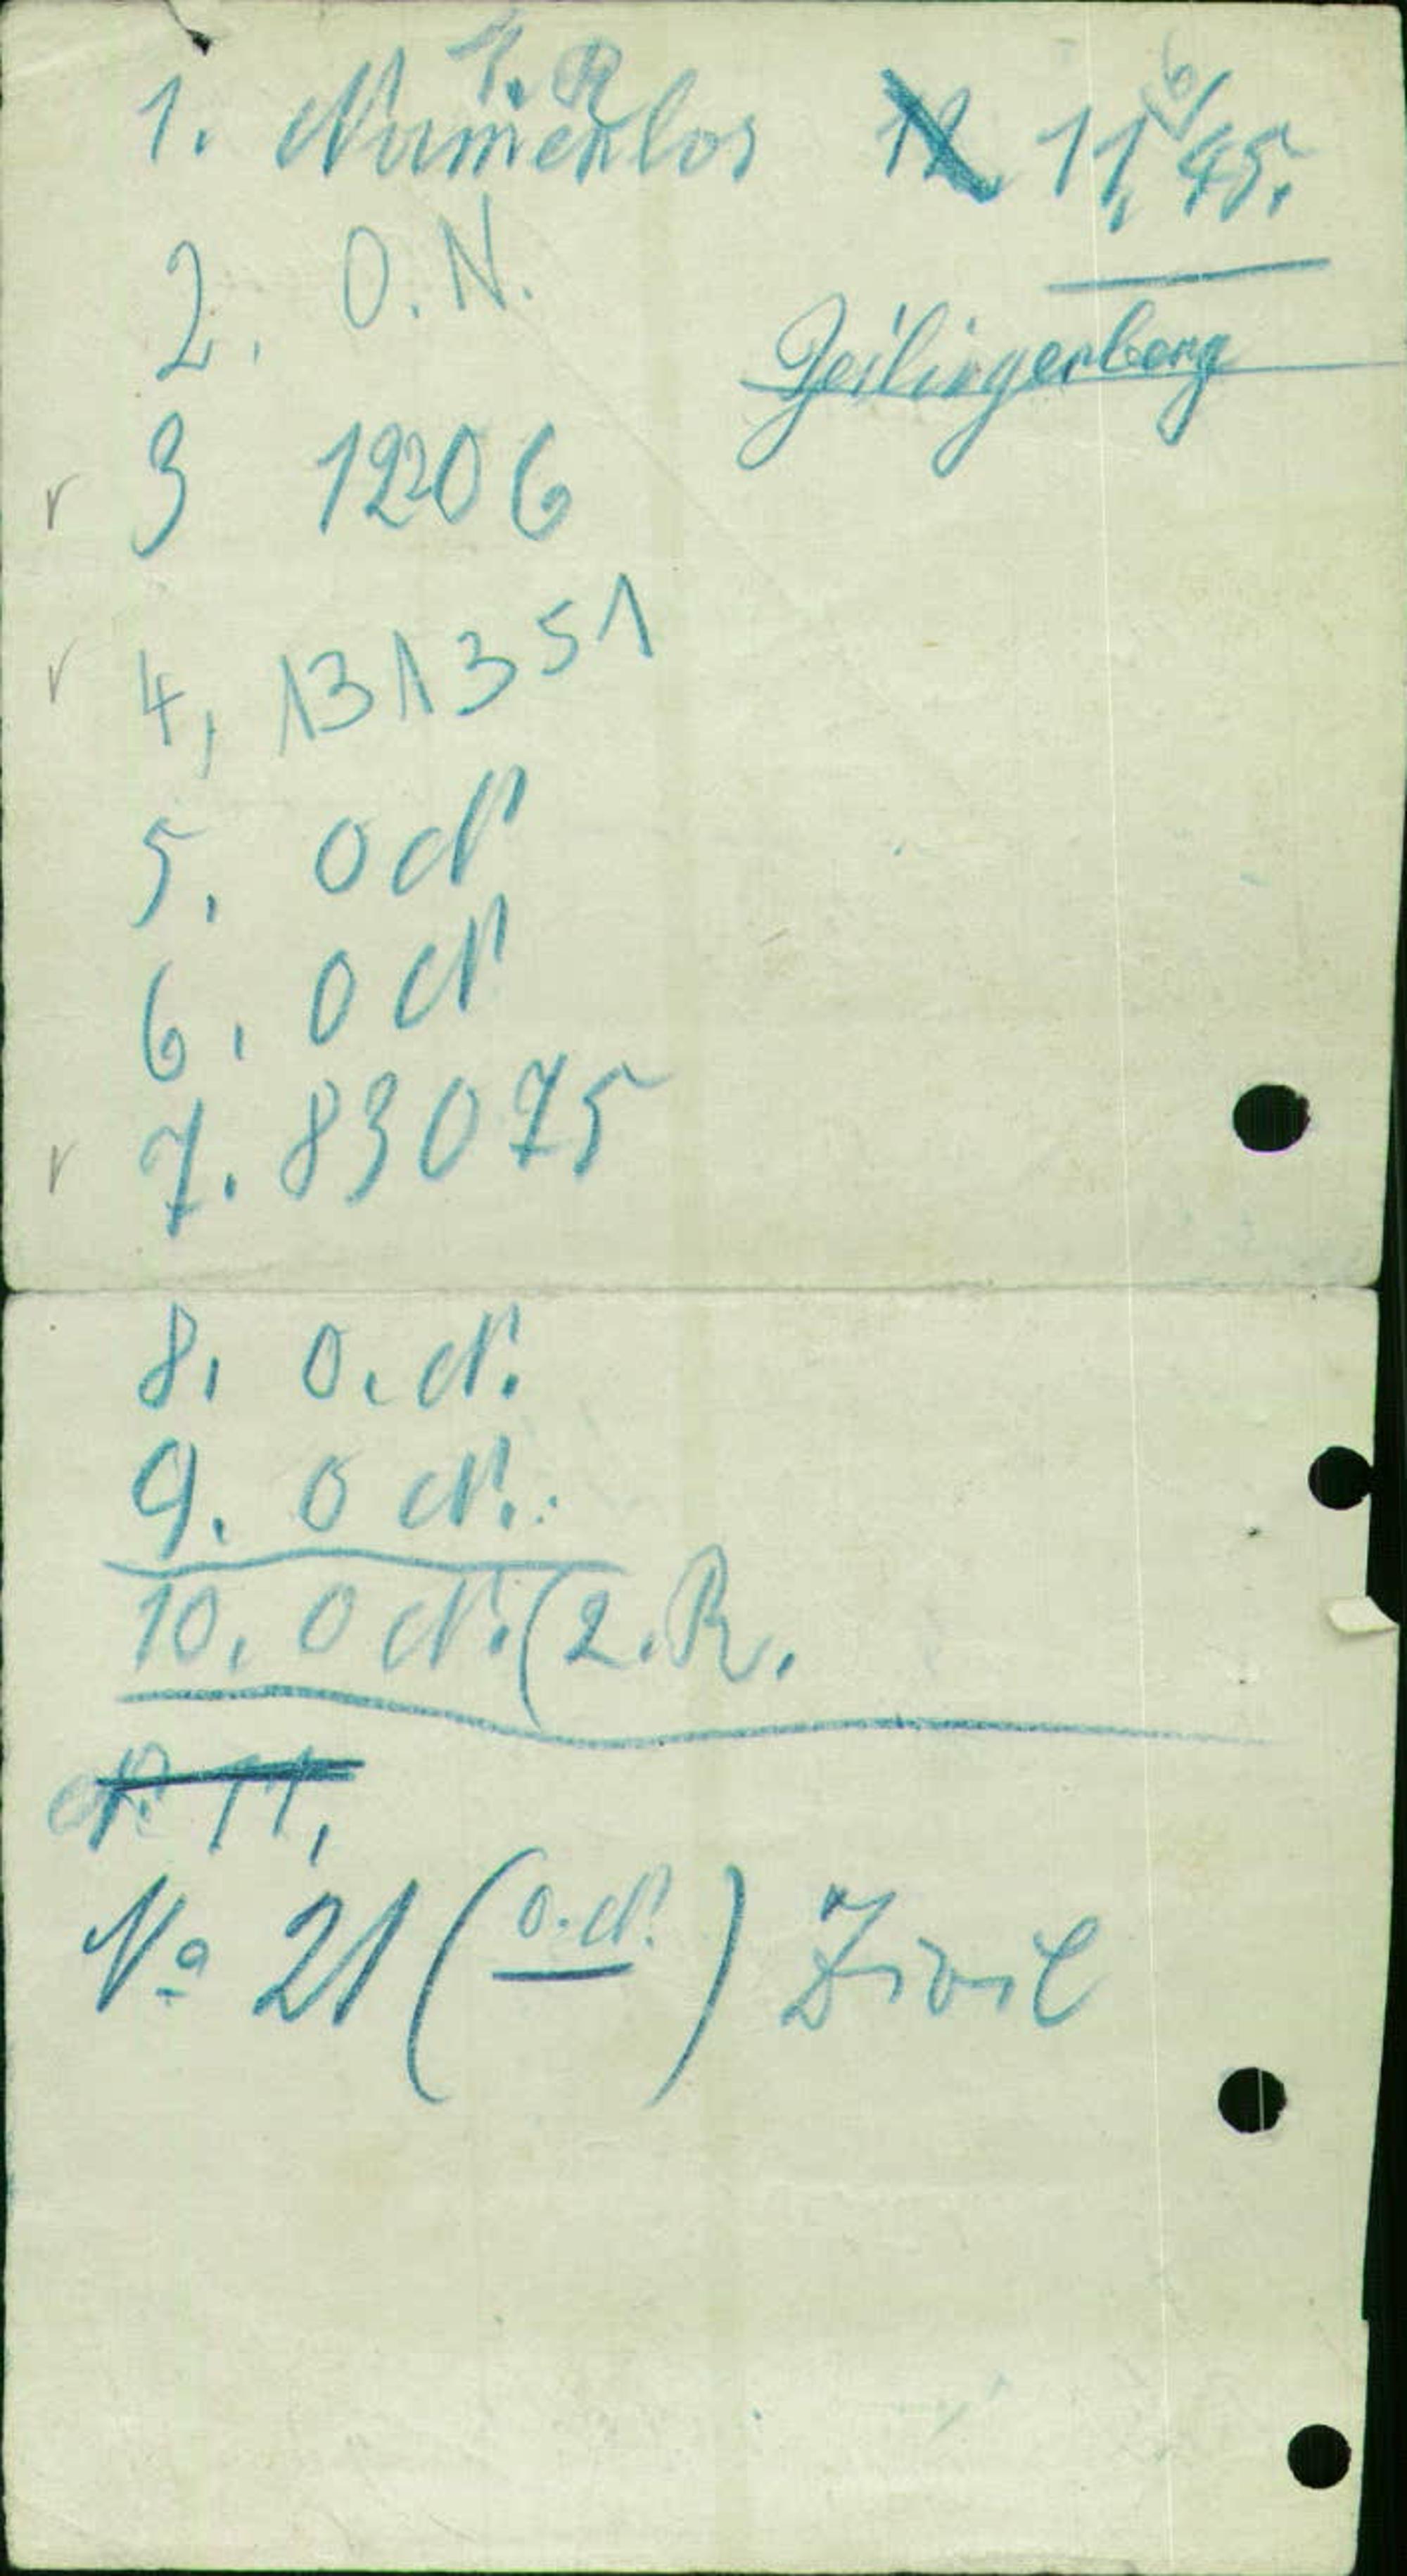 1. R
1. Numerlos 12 11. 6/45.
2. O.N.
Geilingerberg
3 12206
4, 131351
5. O N
6. O N
7. 83075
8. O. N.
9. O N.
10. O N. (2. R.
N. 11.
No 21 (O. N.) Zivil